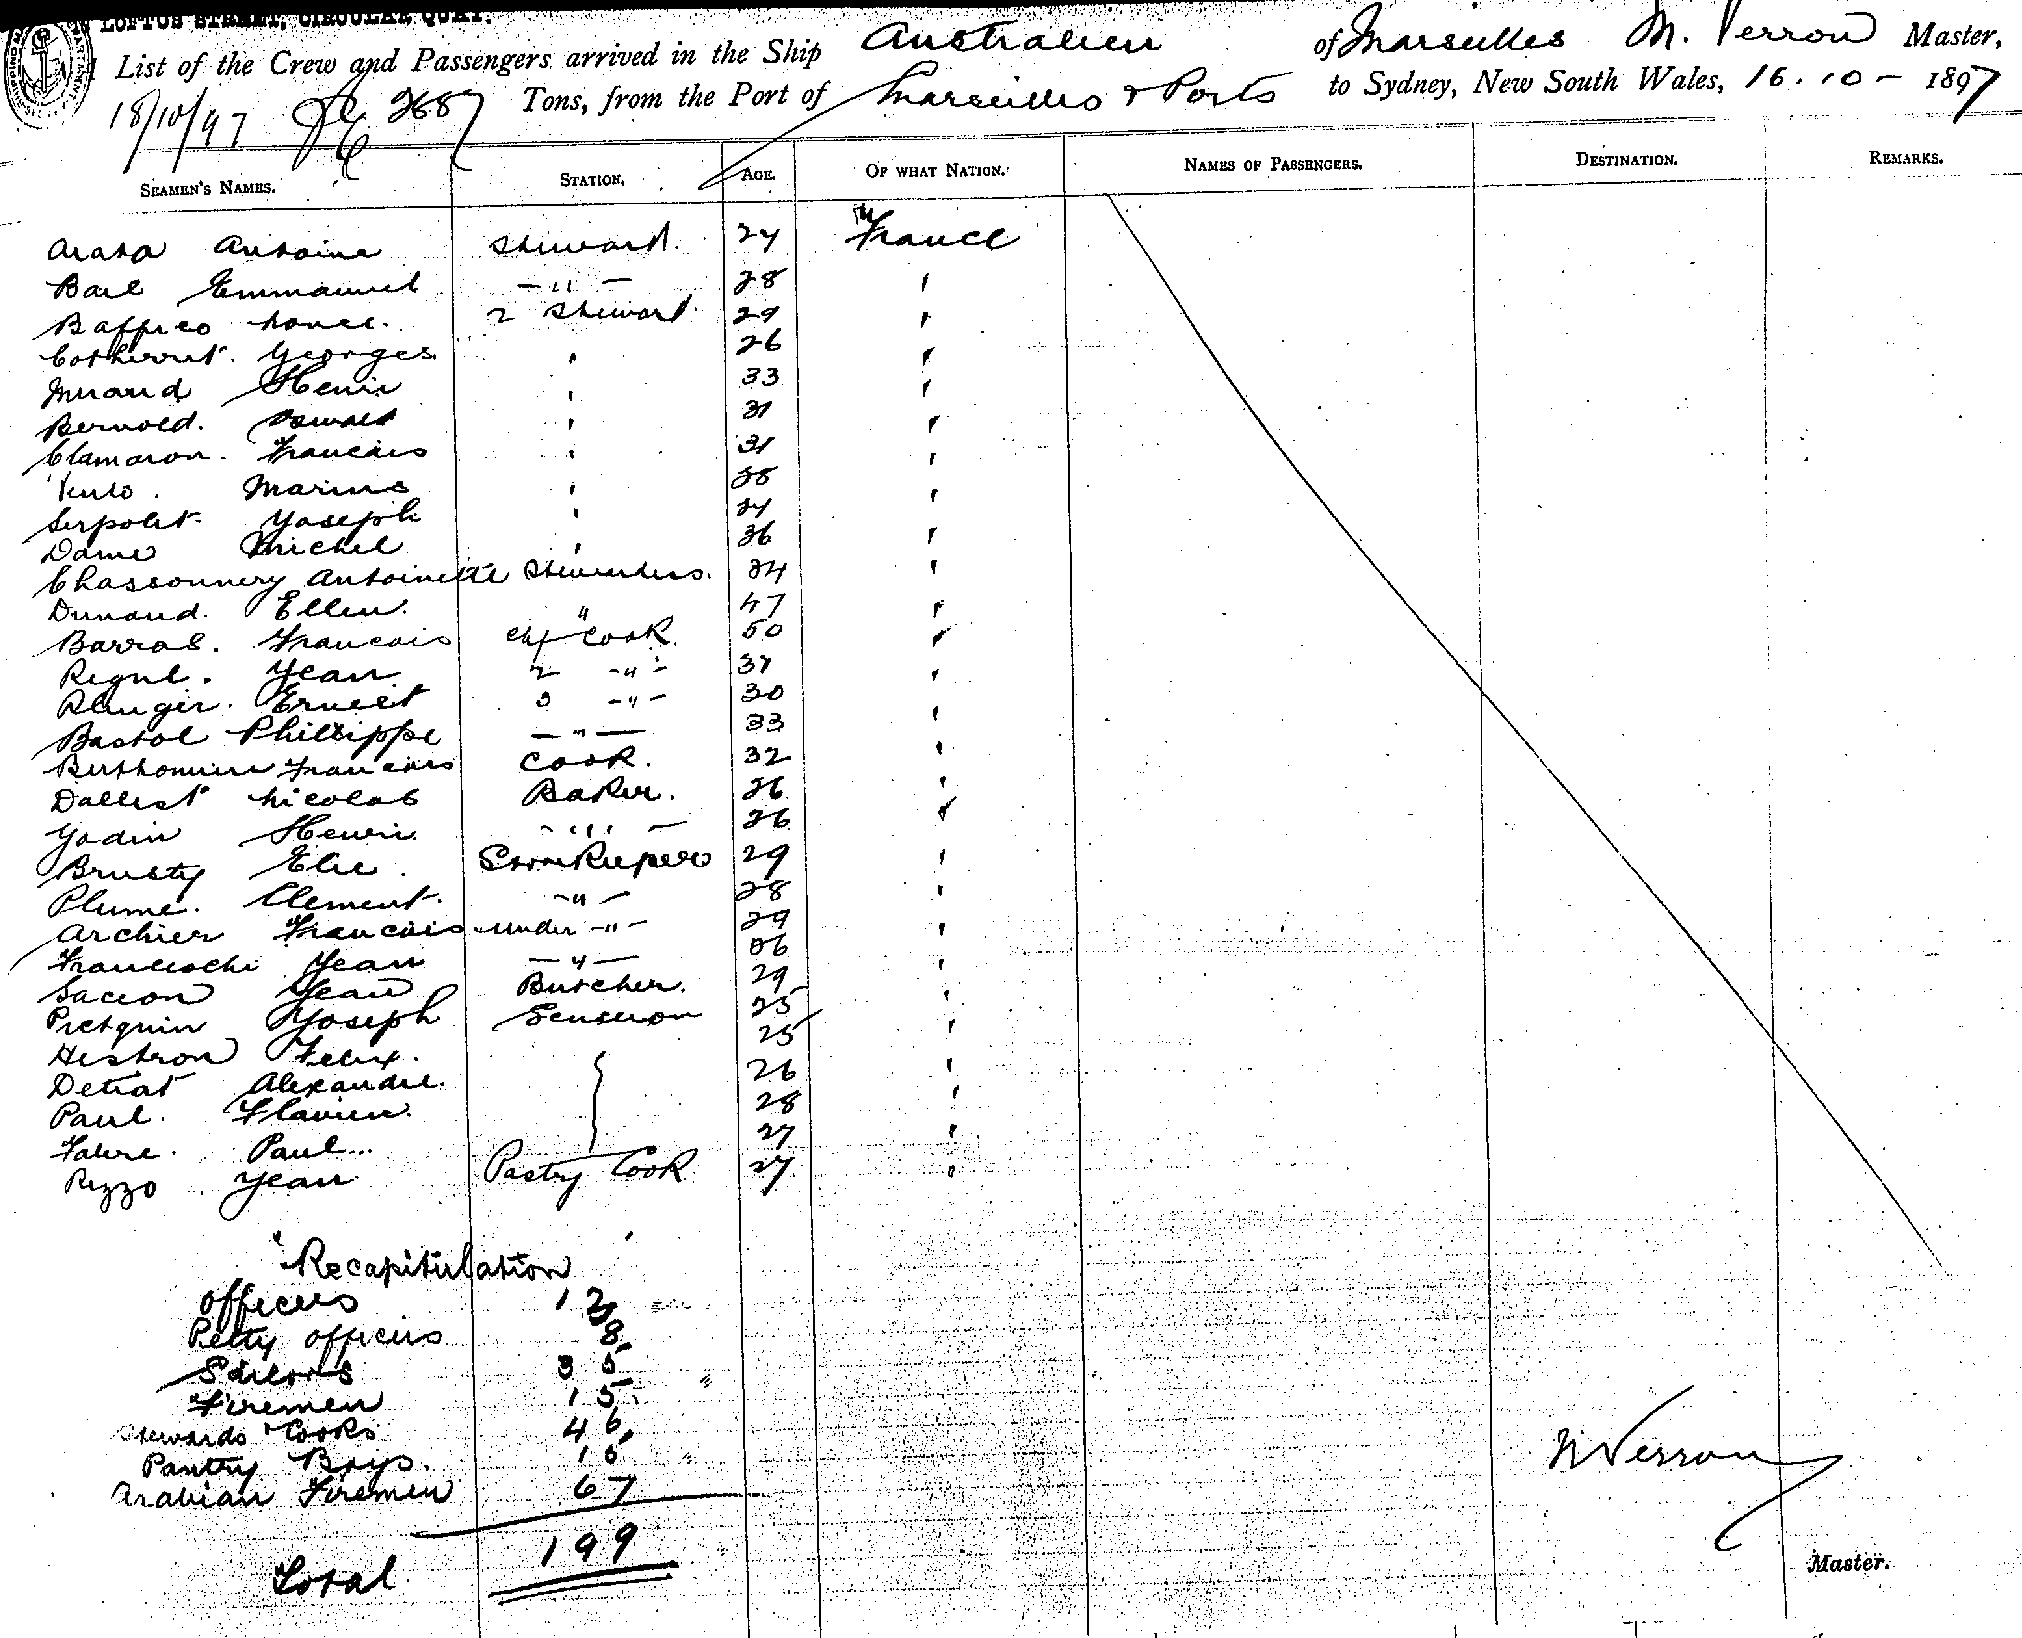 LOFTUS STREET, CIRCULAR QUAY.
List of the Crew and Passengers arrived in the Ship Australien of Marseilles M. Verron Master,
18/10/97 2687 Tons, from the Port of Marseilles & Ports to Sydney, New South Wales, 16.10- 1897
SEAMEN'S NAMES. STATION. AGE. OF WHAT NATION. NAMES OF PASSENGERS. DESTINATION. REMARKS.
Antoine Steward. 24 France
Emmanuel -"- 28 "
2 Steward 29 "
Georges " 26 "
Henri " 33 "
Bernold. " 31 "
Clamaron. Francois " 31 "
Marius " "
Serpolet. Yoseph " "
Dame Michel " 36 "
Chassonnery Antoinette Stewardess. 34 "
Dunand. Ellen. " 47 "
Barral. Francois chf Cook. 50 "
Yean 2 -"- "
Ernest 3 -"- 30 "
Bastol Phillippe -"- 33 "
Francois Cook. 32 "
Dallest Nicolas Baker. 26 "
Yodin Henri -"- 26 "
Brusty Elie. Storekeeper 29 "
Plume. Clement. -"- 28 "
Archier Francois under -"- 29 "
Franceschi Yean -"- 36 "
Yean Butcher. 29 "
Yoseph 25 "
Hestron Felix. 25 "
Detrat Alexandre. 26 "
Paul. Flavien. 28 "
Fabre. Paul 27 "
Rizzo Yean Pastry Cook 27 "
Recapitulation
Officers 13
Petty officers 8
Sailors 35
Firemen 15
Stewards & Cooks 46
Pantry Boys. 15
Arabian Firemen 67
Total 199
M Verron
Master.